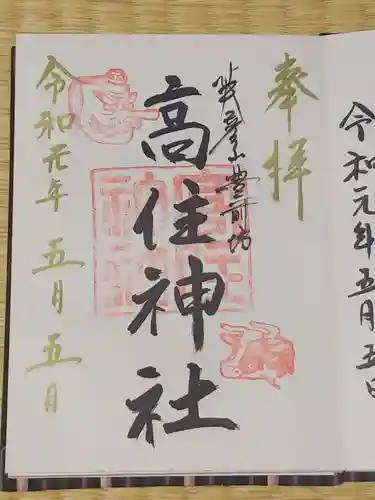 奉拝
英彦山豊前坊
高住神社
令和元年 五月五日
令和元年五月五日